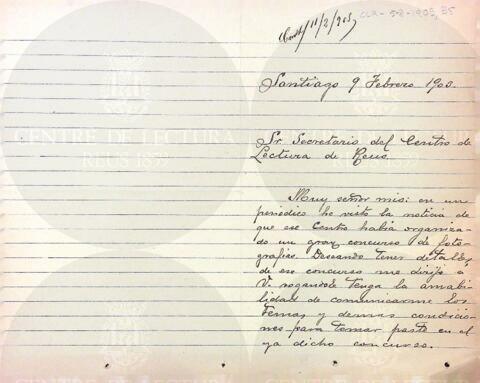 Contdº 11/2/905
CLR-5-2-1905, 35
Santiago 9 Febrero 1905.
Sr Secretario del Centro de
Lectura de Reus.
Muy señor mio: en un
periodico he visto la noticia de
que ese Centro habia organiza-
do un gran concurso de foto-
grafias. Deseando tener detalles,
de ese concurso me dirijo a
V. rogandole tenga la amabi-
lidad de comunicarme los
temas y demas condicio-
nes para tomar parte en el
ya dicho concurso.
CENTRE DE LECTURA
REUS 1859